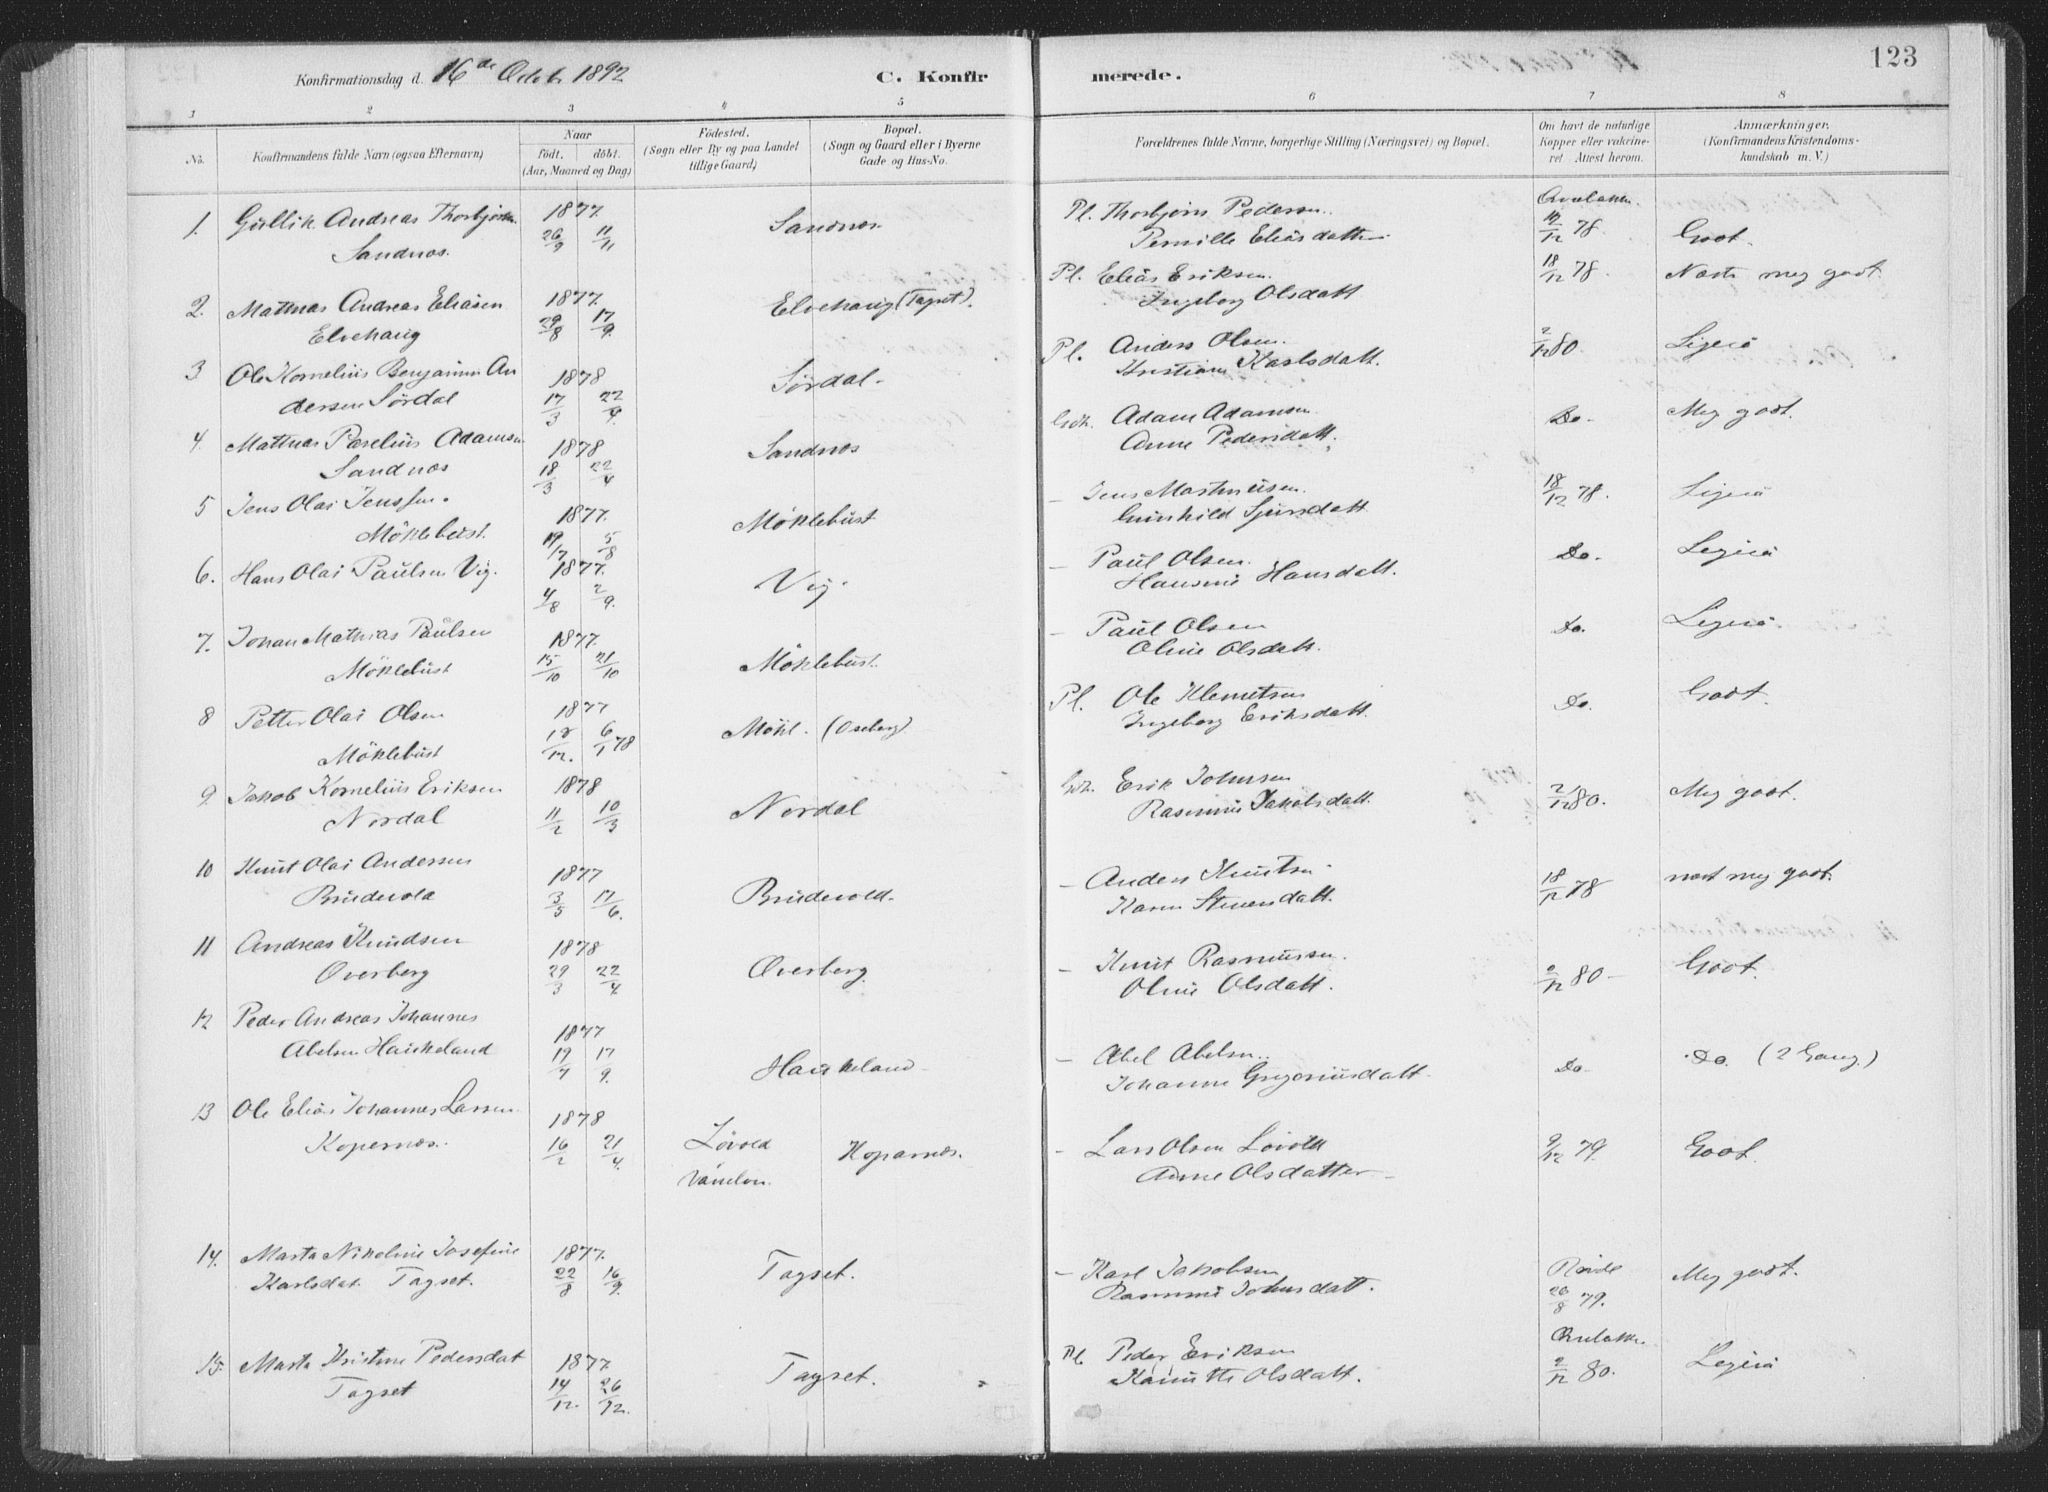 123
Konfirmationsdag d. 16de Octob 1892
C. Konfirmerede.
1 2 3 4 5 6 7 8
No.
Konfirmandens fulde Navn (ogsaa Efternavn)
Naar
födt. döbt.
(Aar, Maaned og Dag)
Födested.
(Sogn eller By og paa Landet
tillige Gaard)
Bopæl.
(Sogn og Gaard eller i Byerne
Gade og Hus-No.
Forældrenes fulde Navne, borgerlige Stilling (Næringsvei) og Bopæl.
Om havt de naturlige
Kopper eller vakcine-
ret Attest herom.
Anmærkninger.
(Konfirmandens Kristendoms-
kundskab m. V.)
1. Gullik Andreas Thorbjörn 1877 Sandnæs Pl. Thorbjörn Pedersen
Sandnæs. 26/9 11/11 Pernille Eliasdatter 78. Godt.
2. Mathias Andreas Eliasen 1877 Elvehaug (Tagset). Pl. Elias Eriksen 18/12 78. meg godt
Elvehaug 29/8 17/9 Ingeborg Olsdatt
3 Ole Kornelius Benjamin An 1878 Sørdal Pl. Anders Olsen 2/12 80 Ligesaa
dersen Sørdal 17/3 22/4 Karlsdatt.
4. Mathias Adamsen 1878 Sandnæs Adam Adamsen Do Meg godt.
Sandnæs 18/3 22/4 Anne Pedersdatt.
5 Jens Olai Jenssen 1877 Möklebust – Jens 18/12 78. Ligesaa
Möklebust. 19/7 5/8 Gunhild
6. Hans Olai Paulsen Vig. 1877. Vig. – Paul Olsen Do.
4/8 2/9. Hansdatt.
7. Johan Mathias Paulsen 1877 Möklebust. – Paul Olsen Do.
Möklebust 15/10 21/10 Oline Olsdatt.
8 Petter Olai Olsen 1877 Mökl. (Oseberg) Pl. Ole Klemetsen Do. Godt.
Möklebust 18/12. 6/1 78 Ingeborg Eriksdatt.
9. Jakob Kornelius Eriksen 1878 Nordal Erik Johnsen 2/12 80. Meg godt.
Nordal 11/2 10/3 Jakobsdatt.
10 Knut Olai Andersen 1877 Brudevold. – Anders Knutsen 18/12 78 meg godt.
Brudevold 3/5 17/6. Karen
11 Andreas Knudsen 1878 Överberg – Knut Rasmussen 2/12 80 Godt.
Överberg 29/3 22/4 Oline Olsdatt.
12 Peder Andreas Johannes 1877 Haukeland – Abel Abelsen Do Do. (2 Gang.)
Abelsen Haukeland 19/7 17/9. Johanne Gregoriusdatt
13 Ole Elias Johannes Larsen 1878 Lövold Koparnæs. – Lars Olsen Lövold 9/12 79. Godt.
Kopernæs. 16/2 21/4. Vanelven. Anne Olsdatter
14. Marta Nikoline Josefine 1877. Tagset. – Karl Jakobsen Meg godt.
Karlsdat. Tagset. 22/8 16/9. Johnsdatt. 26/8 79.
15. Marta Kristine Pedersdat 1877. Tagset. Pl. Peder Eriksen
Tagset 14/12. 26/12. Olsdatt. 2/12 80. Ligesaa